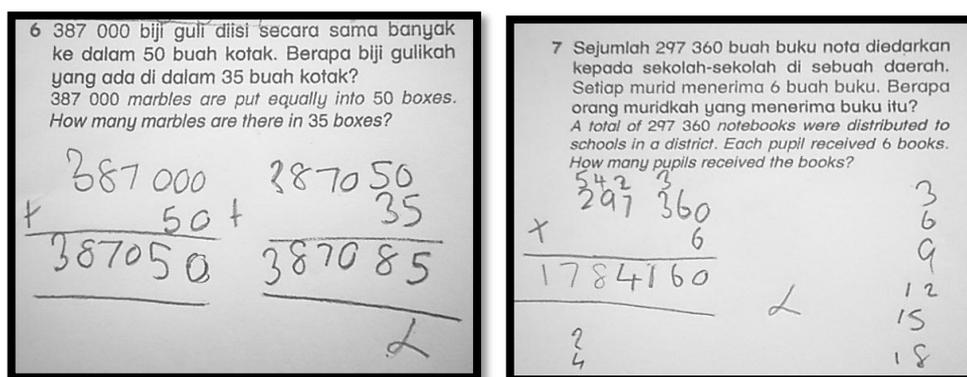 6 387 000 biji guli diisi secara sama banyak
ke dalam 50 buah kotak. Berapa biji gulikah
yang ada di dalam 35 buah kotak?
387 000 marbles are put equally into 50 boxes.
How many marbles are there in 35 boxes?
387 000
+ 50
387050
387050
+ 35
387085
7 Sejumlah 297 360 buah buku nota diedarkan
kepada sekolah-sekolah di sebuah daerah.
Setiap murid menerima 6 buah buku. Berapa
orang muridkah yang menerima buku itu?
A total of 297 360 notebooks were distributed to
schools in a district. Each pupil received 6 books.
How many pupils received the books?
5 4 2 3
297 360
× 6
1784160
2
4
3
6
9
12
15
18